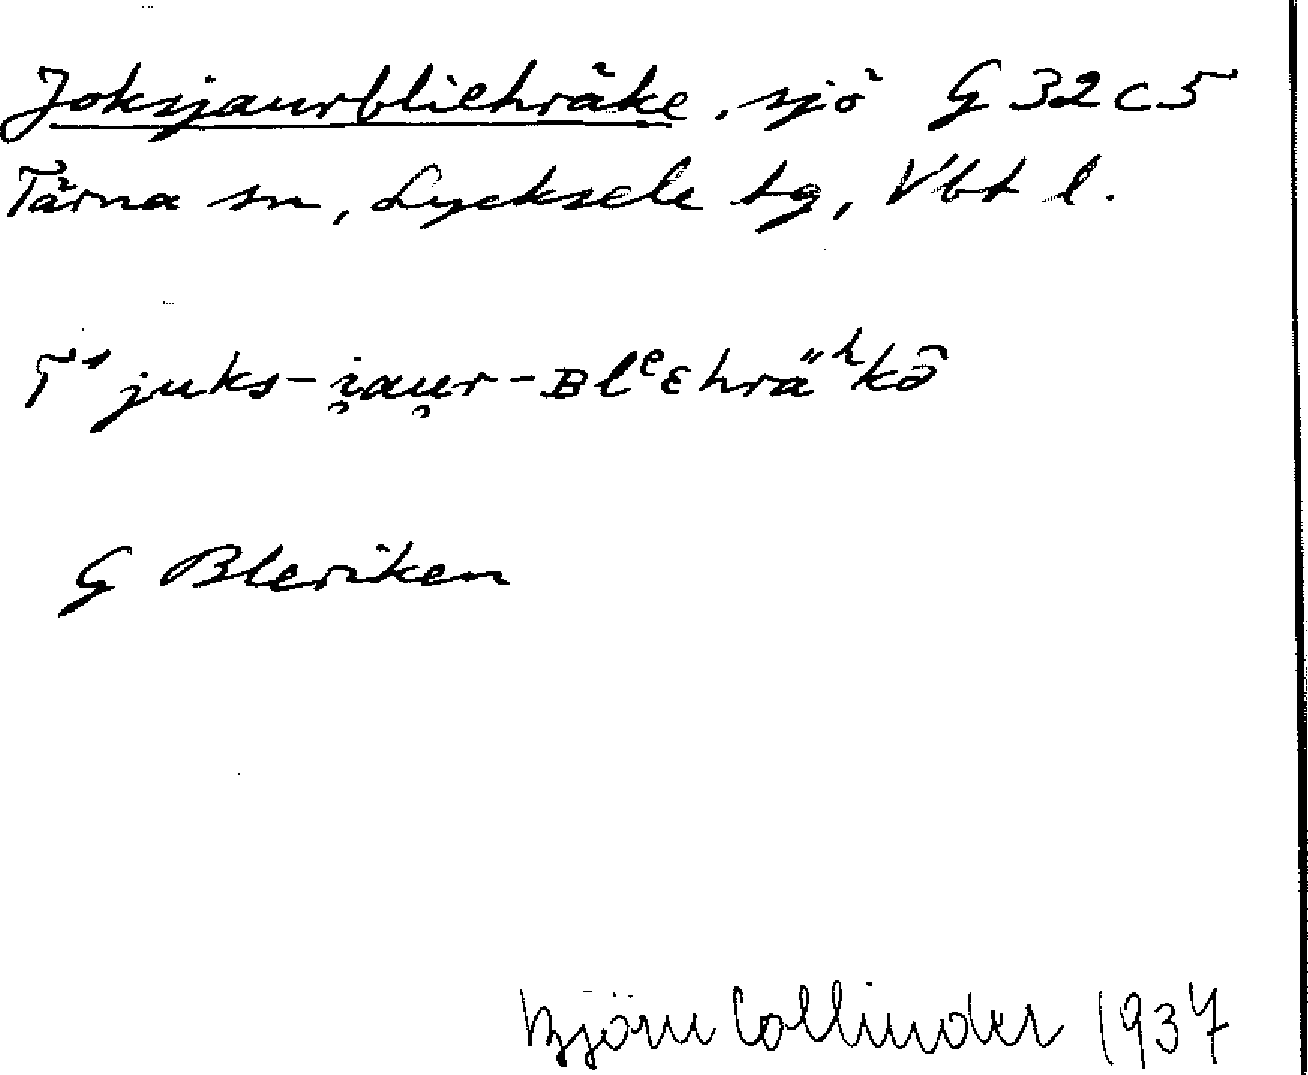 Joksjaurbliehräke, sjö G 32 c 5
Tärna sn, Lycksele tg, Vbt l.
T¹ juks-i̯au̯r-ʙlᵉɛhrä"ʰkō̂
G Bleriken
Björn Collinder 1937